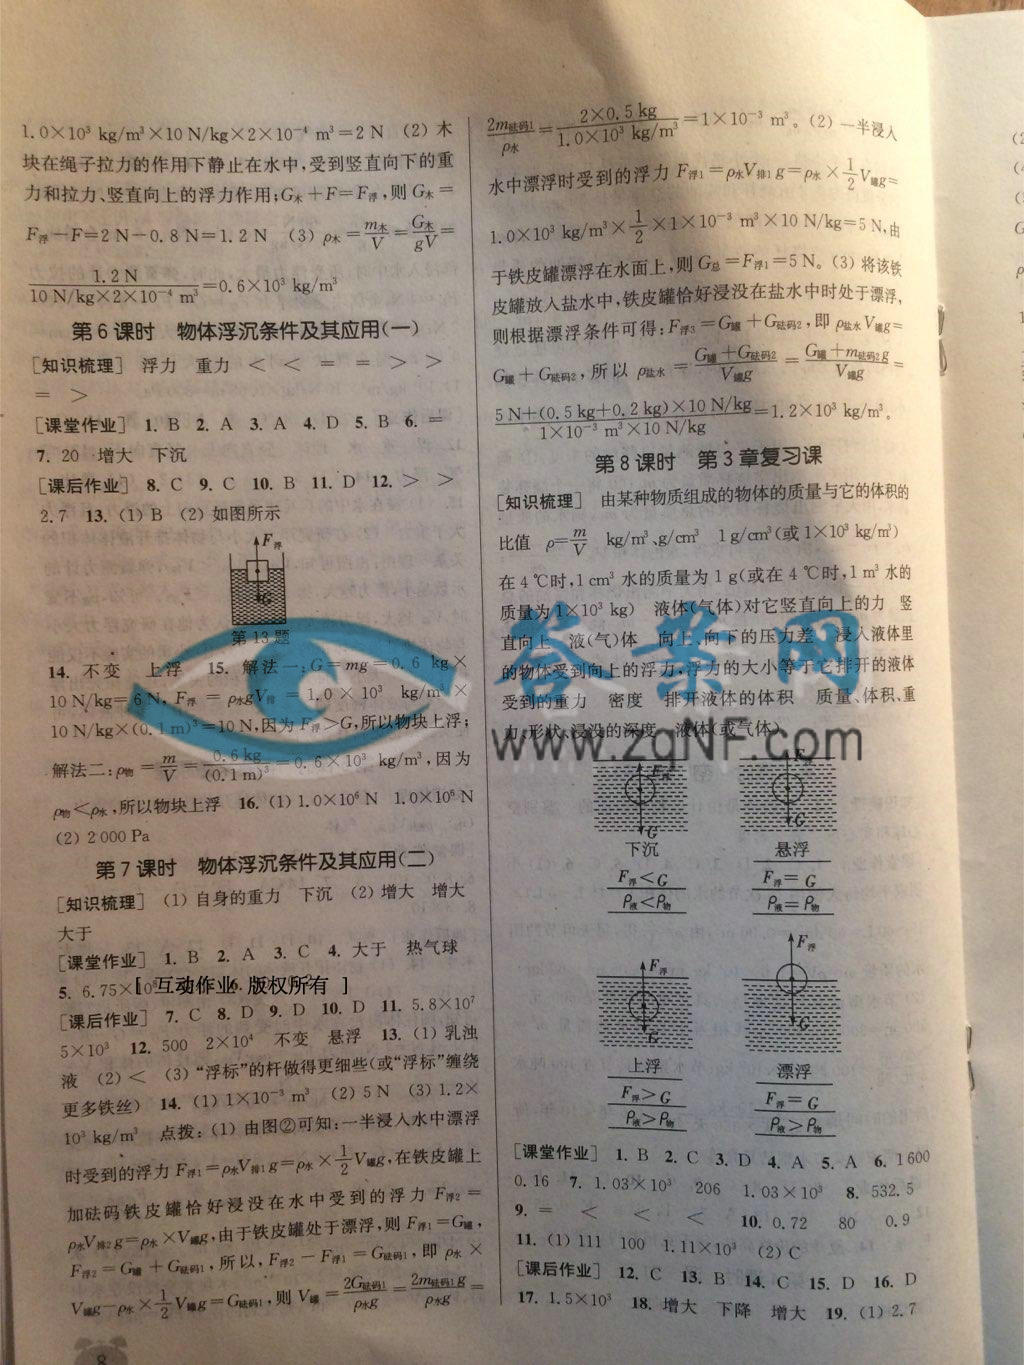 1.0×10³ kg/m³×10 N/kg×2×10⁻⁴ m³=2 N (2) 木
块在绳子拉力的作用下静止在水中,受到竖直向下的重
力和拉力、竖直向上的浮力作用;G木+F=F浮,则 G木=
F浮-F=2 N-0.8 N=1.2 N (3) ρ木=m木/V=G木/gV=
1.2 N/(10 N/kg×2×10⁻⁴ m³)=0.6×10³ kg/m³
第 6 课时 物体浮沉条件及其应用(一)
[知识梳理] 浮力 重力 < < = = > >
= >
[课堂作业] 1. B 2. A 3. A 4. D 5. B 6. =
7. 20 增大 下沉
[课后作业] 8. C 9. C 10. B 11. D 12. > >
2.7 13. (1) B (2) 如图所示
F浮
G
第 13 题
14. 不变 上浮 15. 解法一:G=mg=0.6 kg×
10 N/kg=6 N,F浮=ρ水gV排=1.0×10³ kg/m³×
10 N/kg×(0.1 m)³=10 N,因为 F浮>G,所以物块上浮;
解法二:ρ物=m/V=0.6 kg/(0.1 m)³=0.6×10³ kg/m³,因为
ρ物<ρ水,所以物块上浮 16. (1) 1.0×10⁶ N 1.0×10⁶ N
(2) 2 000 Pa
第 7 课时 物体浮沉条件及其应用(二)
[知识梳理] (1) 自身的重力 下沉 (2) 增大 增大
大于
[课堂作业] 1. B 2. A 3. C 4. 大于 热气球
5. 6.75×10 [ 互动作业 6. 版权所有 ]
[课后作业] 7. C 8. D 9. D 10. D 11. 5.8×10⁷
5×10³ 12. 500 2×10⁴ 不变 悬浮 13. (1) 乳浊
液 (2) < (3) “浮标”的杆做得更细些(或“浮标”缠绕
更多铁丝) 14. (1) 1×10⁻³ m³ (2) 5 N (3) 1.2×
10³ kg/m³ 点拨:(1) 由图②可知:一半浸入水中漂浮
时受到的浮力 F浮1=ρ水V排1g=ρ水×1/2V罐g,在铁皮罐上
加砝码铁皮罐恰好浸没在水中受到的浮力 F浮2=
ρ水V排2g=ρ水×V罐g,由于铁皮罐处于漂浮,则 F浮1=G罐,
F浮2=G罐+G砝码1,所以,F浮2-F浮1=G砝码1,即 ρ水×
V罐g-ρ水×1/2V罐g=G砝码1,则 V罐=2G砝码1/ρ水g=2m砝码1g/ρ水g=
8
2m砝码1/ρ水=2×0.5 kg/(1.0×10³ kg/m³)=1×10⁻³ m³。(2) 一半浸入
水中漂浮时受到的浮力 F浮1=ρ水V排1g=ρ水×1/2V罐g=
1.0×10³ kg/m³×1/2×1×10⁻³ m³×10 N/kg=5 N,由
于铁皮罐漂浮在水面上,则 G总=F浮1=5 N。(3) 将该铁
皮罐放入盐水中,铁皮罐恰好浸没在盐水中时处于漂浮,
则根据漂浮条件可得:F浮3=G罐+G砝码2,即 ρ盐水V罐g=
G罐+G砝码2,所以 ρ盐水=(G罐+G砝码2)/V罐g=(G罐+m砝码2g)/V罐g=
(5 N+(0.5 kg+0.2 kg)×10 N/kg)/(1×10⁻³ m³×10 N/kg)=1.2×10³ kg/m³。
第 8 课时 第 3 章复习课
[知识梳理] 由某种物质组成的物体的质量与它的体积的
比值 ρ=m/V kg/m³、g/cm³ 1 g/cm³(或 1×10³ kg/m³)
在 4 ℃时,1 cm³ 水的质量为 1 g(或在 4 ℃时,1 m³ 水的
质量为 1×10³ kg) 液体(气体)对它竖直向上的力 竖
直向上 液(气)体 向上、向下的压力差 浸入液体里
的物体受到向上的浮力,浮力的大小等于它排开的液体
受到的重力 密度 排开液体的体积 质量、体积、重
力、形状、浸没的深度 液体(或气体)
答案网
www.zqNF.com
F浮 F浮
G G
下沉 悬浮
F浮<G F浮=G
ρ液<ρ物 ρ液=ρ物
F浮 F浮
G G
上浮 漂浮
F浮>G F浮=G
ρ液>ρ物 ρ液>ρ物
[课堂作业] 1. B 2. C 3. D 4. A 5. A 6. 1 600
0.16 7. 1.03×10³ 206 1.03×10³ 8. 532.5
9. = < < < 10. 0.72 80 0.9
11. (1) 111 100 1.11×10³ (2) C
[课后作业] 12. C 13. B 14. C 15. D 16. D
17. 1.5×10³ 18. 增大 下降 增大 19. (1) 2.7